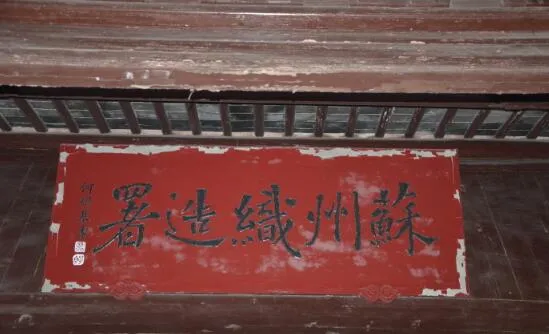 蘇州織造署